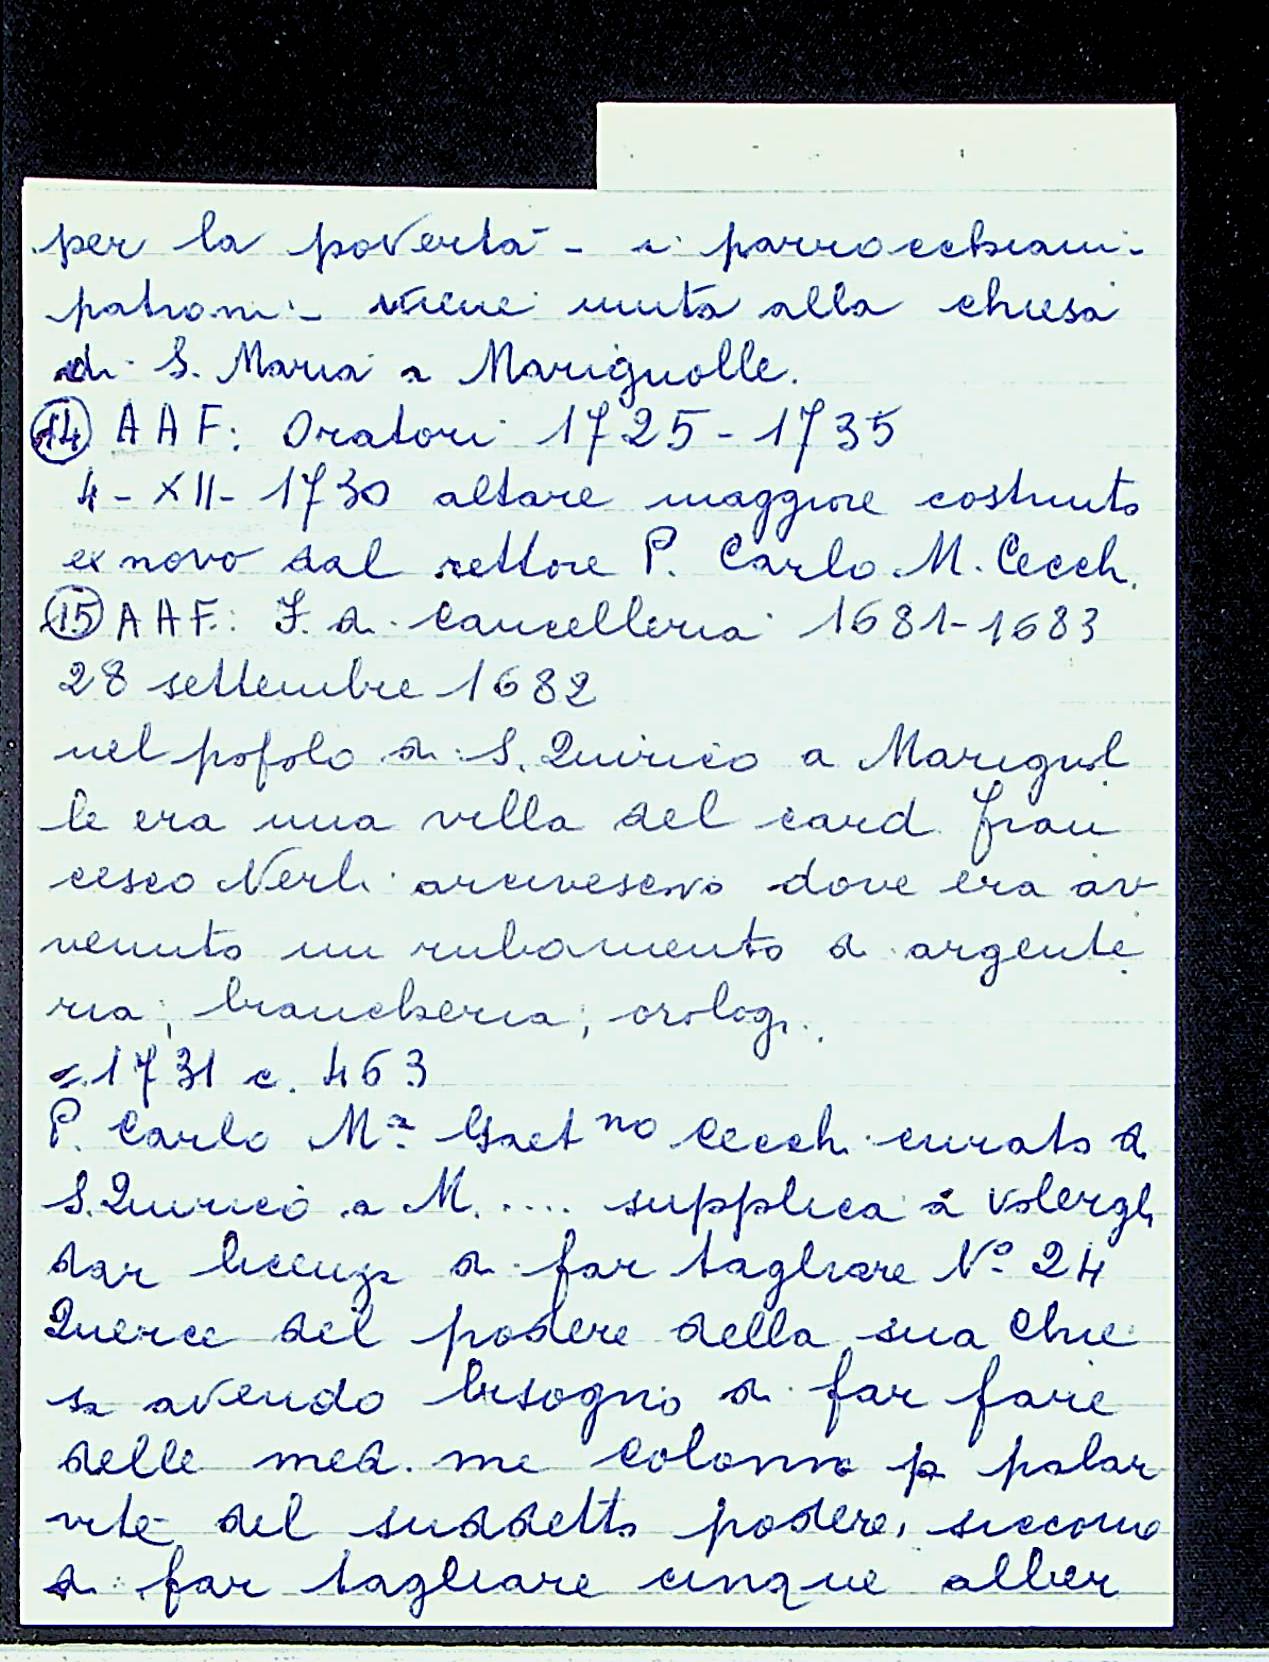 per la povertà - i parrocchiani
patroni - viene unita alla chiesa
di S. Maria a Marignolle.
14 AAF: Oratori 1725-1735
4-XII-1730 altare maggiore costruito
ex novo dal rettore P. Carlo M. Cecchi.
15 AAF: F. di Cancelleria 1681-1683
28 settembre 1682
nel popolo di S. Quirico a Marignol
le era una villa del card. Fran
cesco Nerli arcivescovo dove era av
venuto un rubamento di argente
ria, biancheria, orologi.
= 1731 c. 463
P. Carlo Mª Gaetno Cecchi curato di
S. Quirico a M. .... supplica a volergli
dar licenza di far tagliare Nº 24
Querce del podere della sua Chie
sa avendo bisogno di far fare
delle med.me colonne p palar
vite del suddetto podere, siccome
di far tagliare cinque alberi